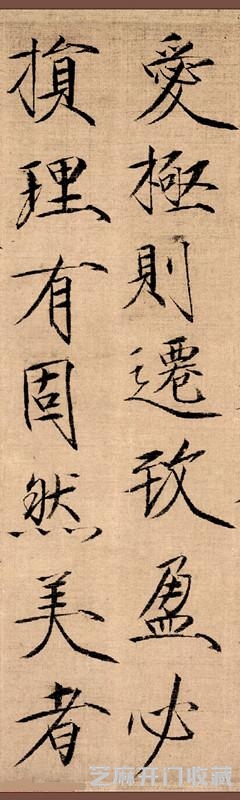 愛極則遷致盈必
損理有固然美者
芝麻开门收藏